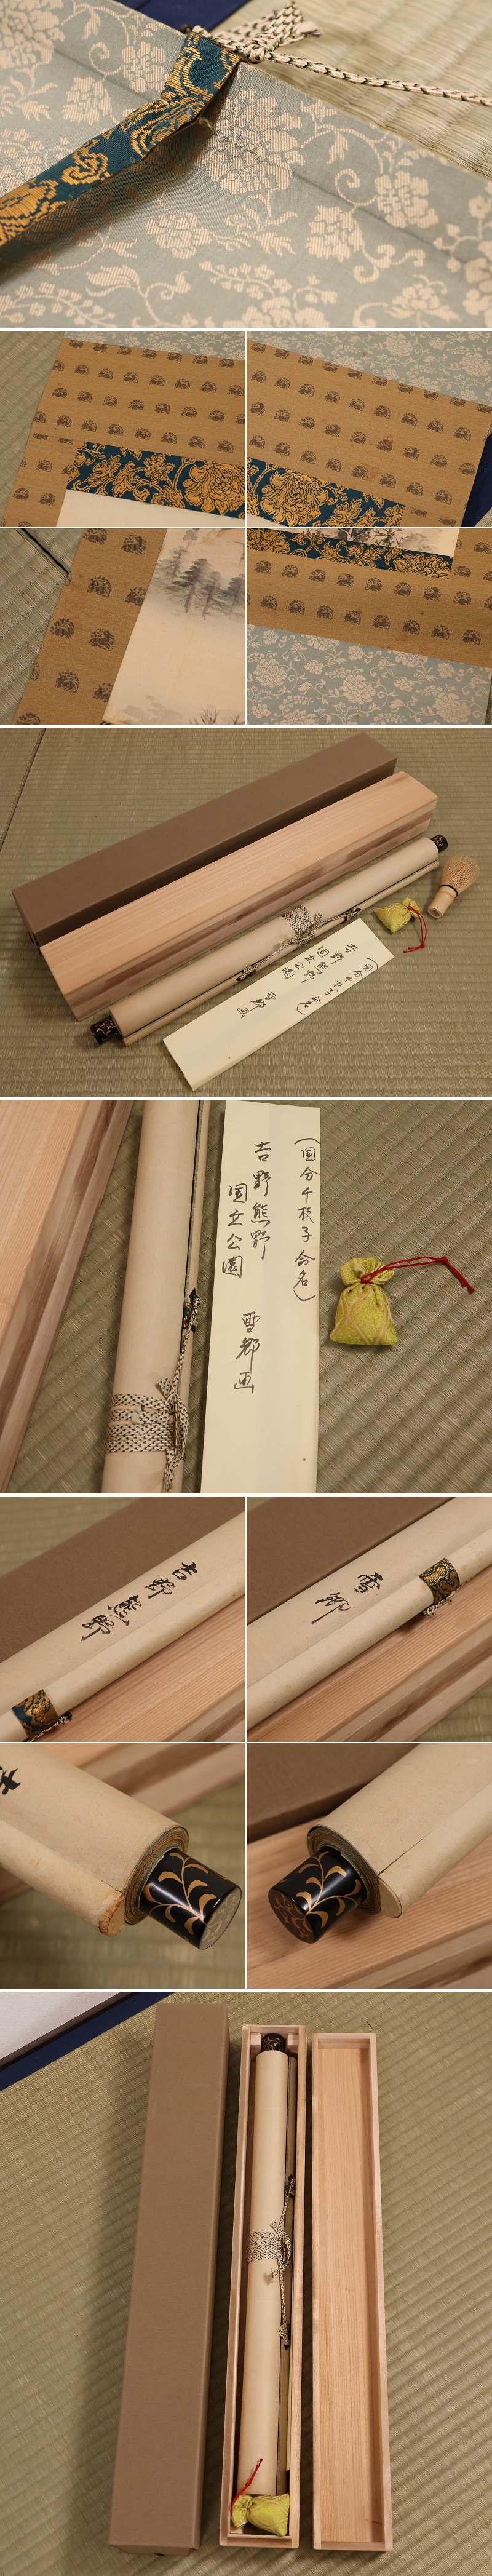 (国分千枝子命名)
吉野熊野
国立公園
雪郷画
(国分千枝子命名)
吉野熊野
国立公園
雪郷画
吉野熊野
雪郷